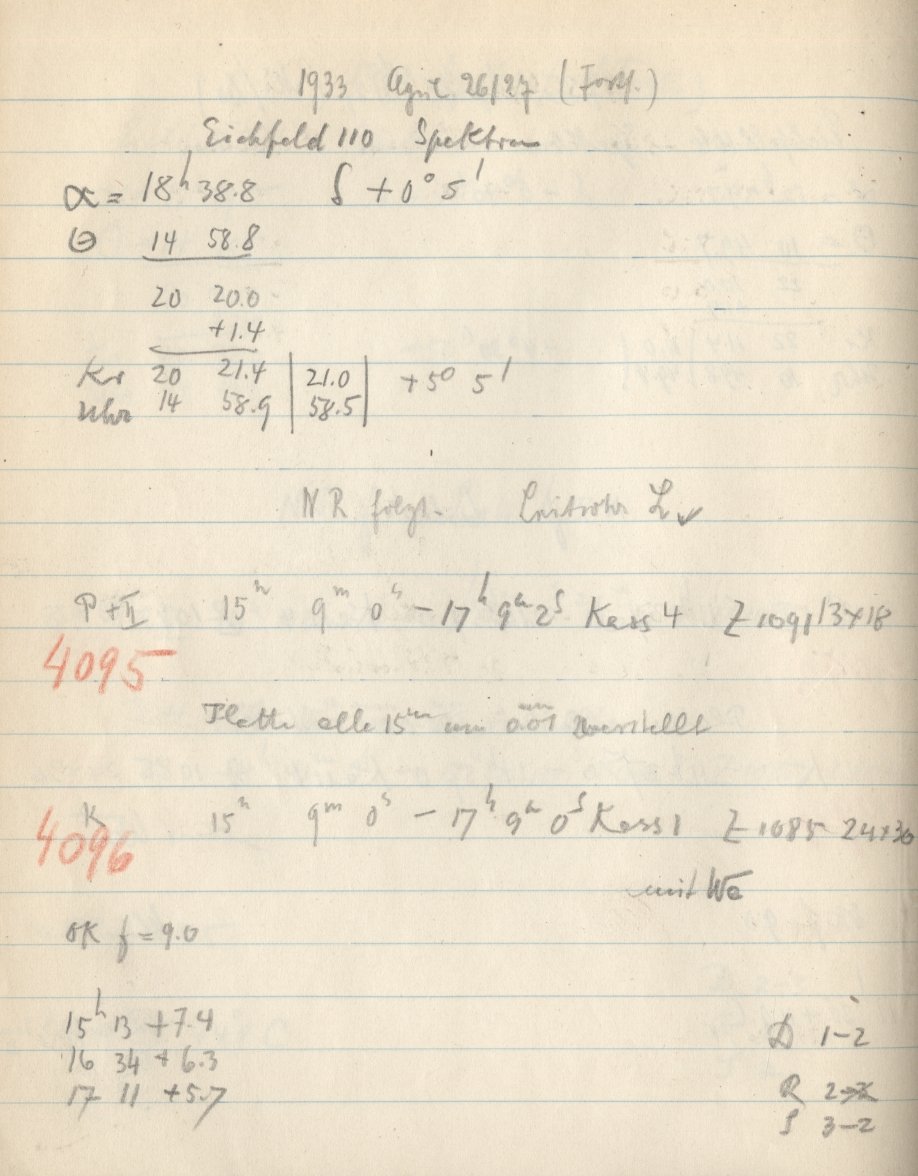 1933 April 26/27 (Forts.)
Eichfeld 110 Spektren
α = 18h 38.8 δ +0° 5'
Θ 14 58.8
20 20.0
+1.4
Kr 20 21.4 | 21.0 | +5° 5'
Uhr 14 58.9 | 58.5 |
NR folgt. Leitrohr L
P+II 15h 9m 0s – 17h 9m 2s Kass 4 Z 1091 13×18
4095
Platte alle 15m um 0.01 verstellt
K 15h 9m 0s – 17h 9m 0s Kass 1 Z 1085 24×30
4096
mit We
OK f = 9.0
15h 13 +7.4
16 34 +6.3
17 11 +5.7
D 1–2
R 2
S 3–2